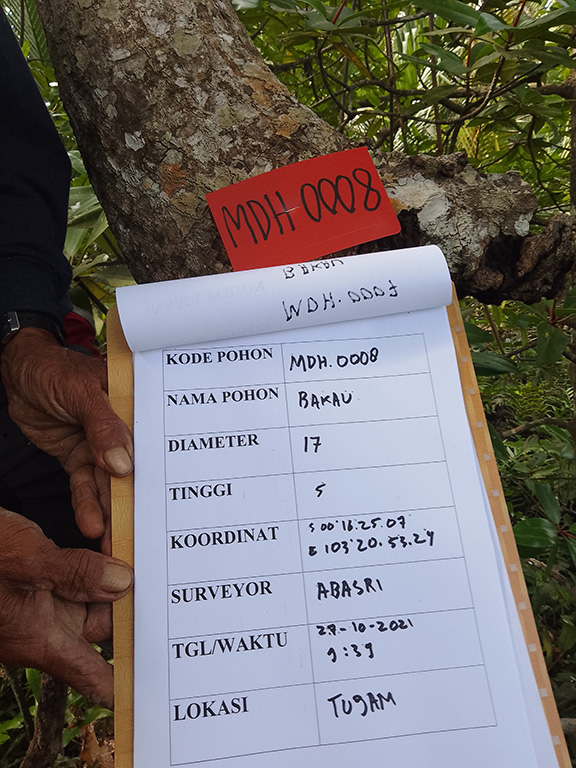 MDH 0008
BAKAU
MDH.0007
KODE POHON MDH.0008
NAMA POHON BAKAU
DIAMETER 17
TINGGI 5
KOORDINAT S 00°16.25.07"
E 103°20.53.29
SURVEYOR ABASRI
TGL/WAKTU 27-10-2021
9:39
LOKASI TUGAM